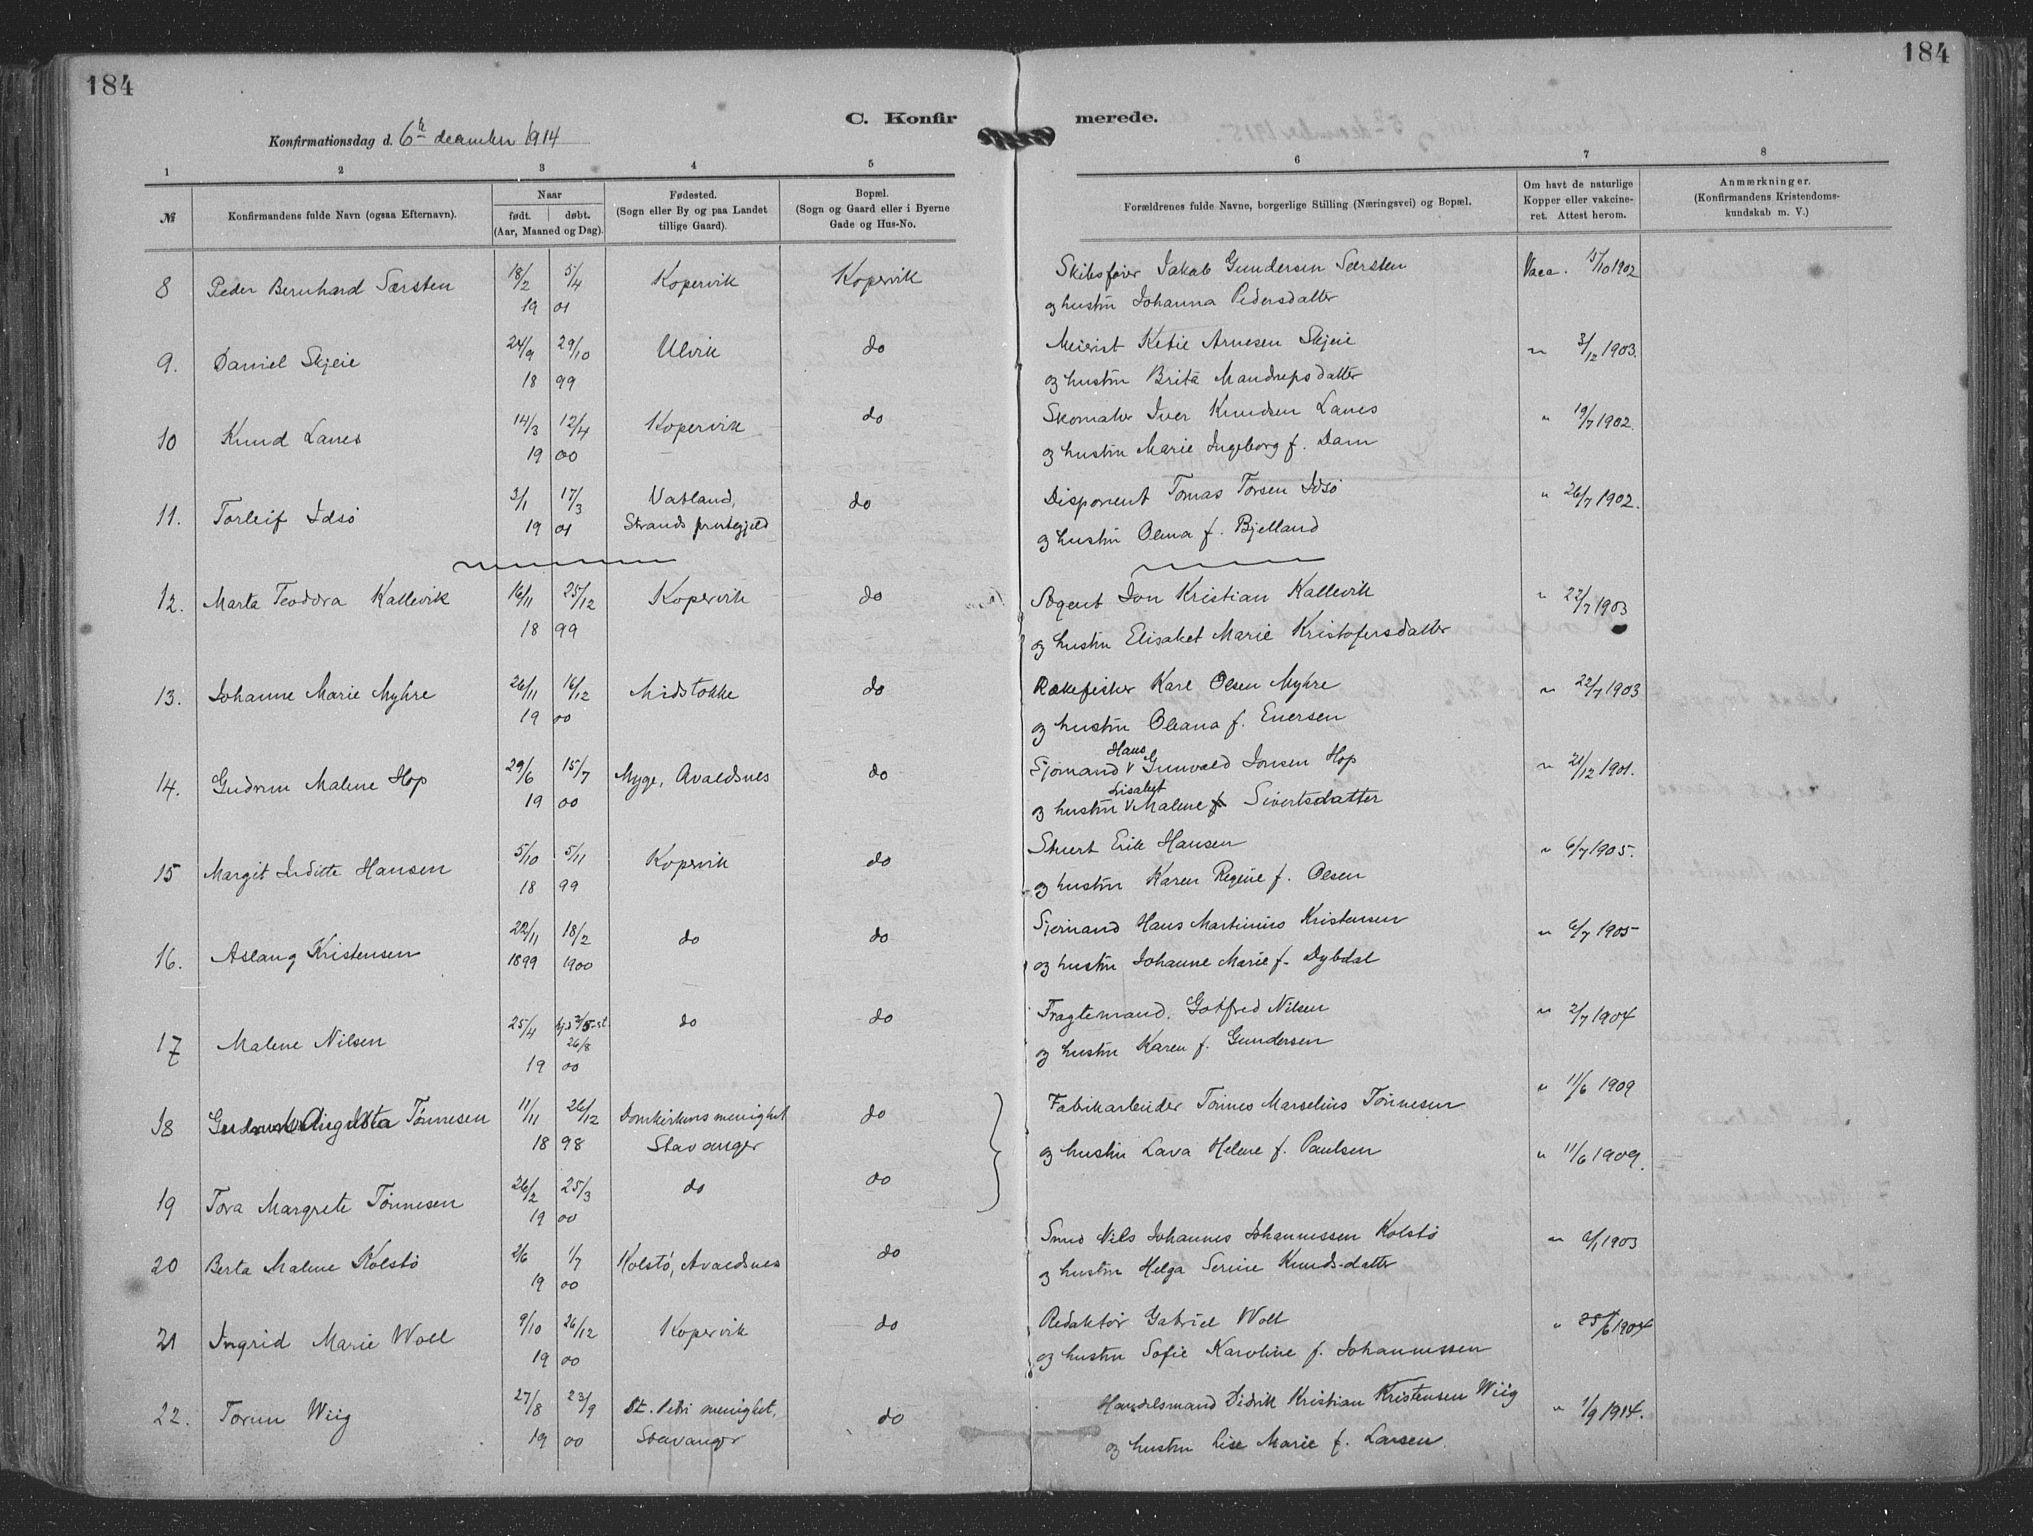 184
184
C. Konfir merede.
Konfirmationsdag d. 6te december 1914
1 2 3 4 5 6 7 8
№ Konfirmandens fulde Navn (ogsaa Efternavn). Naar født. døbt. (Aar, Maaned og Dag). Fødested. (Sogn eller By og paa Landet tillige Gaard). Bopæl. (Sogn og Gaard eller i Byerne Gade og Hus-No. Forældrenes fulde Navne, borgerlige Stilling (Næringsvei) og Bopæl. Om havt de naturlige Kopper eller vakcineret. Attest herom. Anmærkninger. (Konfirmandens Kristendomskundskab m. V.)
8 Peder Bernhard Særsten 18/2 5/4 Kopervik Kopervik Skibsfører Jakob Gundersen Særsten Vacc. 15/10 1902
19 01 og hustru Johanna Pedersdatter
9. Daniel Skjeie 24/9 29/10 Ulvik do Meierist Ketil Arnesen Skjeie " 3/12 1903.
18 99 og hustru Brita Mandrupsdatter
10 Knud Lanes 14/3 12/4 Kopervik do Skomaker Iver Knudsen Lanes " 19/7 1902.
19 00 og hustru Marie Ingeborg f. Dam
11. Torleif Idsø 3/1 17/3 Vatland, do Disponent Tomas Torsen Idsø " 26/7 1902.
19 01 Strands prestegjeld og hustru Olena f. Bjelland
12. Marta Teodora Kallevik 16/11 25/12 Kopervik do Agent Jon Kristian Kallevik " 22/7 1903
18 99 og hustru Elisabet Marie Kristofersdatter
13. Johanne Marie Myhre 26/11 16/12 Midstokke do Rækefisker Karl Olsen Myhre " 22/7 1903
19 00 og hustru Oleana f. Enersen
14. Gudrun Malene Hop 29/6 15/7 Myge, Avaldsnes do Sjømand Hans Gunvald Jonsen Hop " 21/12 1901.
19 00 og hustru Lisabet Malene f Sivertsdatter
15 Margit Juditte Hansen 5/10 5/11 Kopervik do Stuert Erik Hansen " 6/7 1905.
18 99 og hustru Karen Regine f. Olsen
16. Aslaug Kristensen 22/11 18/2 do do Sjømand Hans Martinius Kristensen " 6/7 1905
1899 1900 og hustru Johanne Marie f. Dybdal
17 Malene Nilsen 25/4 hjd 3/5 st 26/8 do do Fragtemand. Gotfred Nilsen " 2/7 1904
19 00 og hustru Karen f. Gundersen
18 Gudrun Augusta Tønnesen 11/11 26/12 Domkirkens menighet do Fabrikarbeider Tønnes Marselius Tønnesen " 11/6 1909
18 98 Stavanger og hustru Lava Helene f. Paulsen " 11/6 1909.
19 Tora Margrete Tønnesen 26/2 25/3 do do
19 00
20 Berta Malene Kolstø 2/6 1/7 Kolstø, Avaldsnes do Smed Nils Johannes Johannessen Kolstø " 6/1 1903
19 00 og hustru Helga Serine Knuds-datter
21 Ingrid Marie Woll 9/10 26/12 Kopervik do Redaktør Gabriel Woll " 25/6 1904
19 00 og hustru Sofie Karoline f. Johannessen
22. Torun Wiig 27/8 23/9 St. Petri menighet, do Handelsmand Didrik Kristian Kristensen Wiig " 1/9 1914.
19 00 Stavanger og hustru Lise Marie f. Larsen.